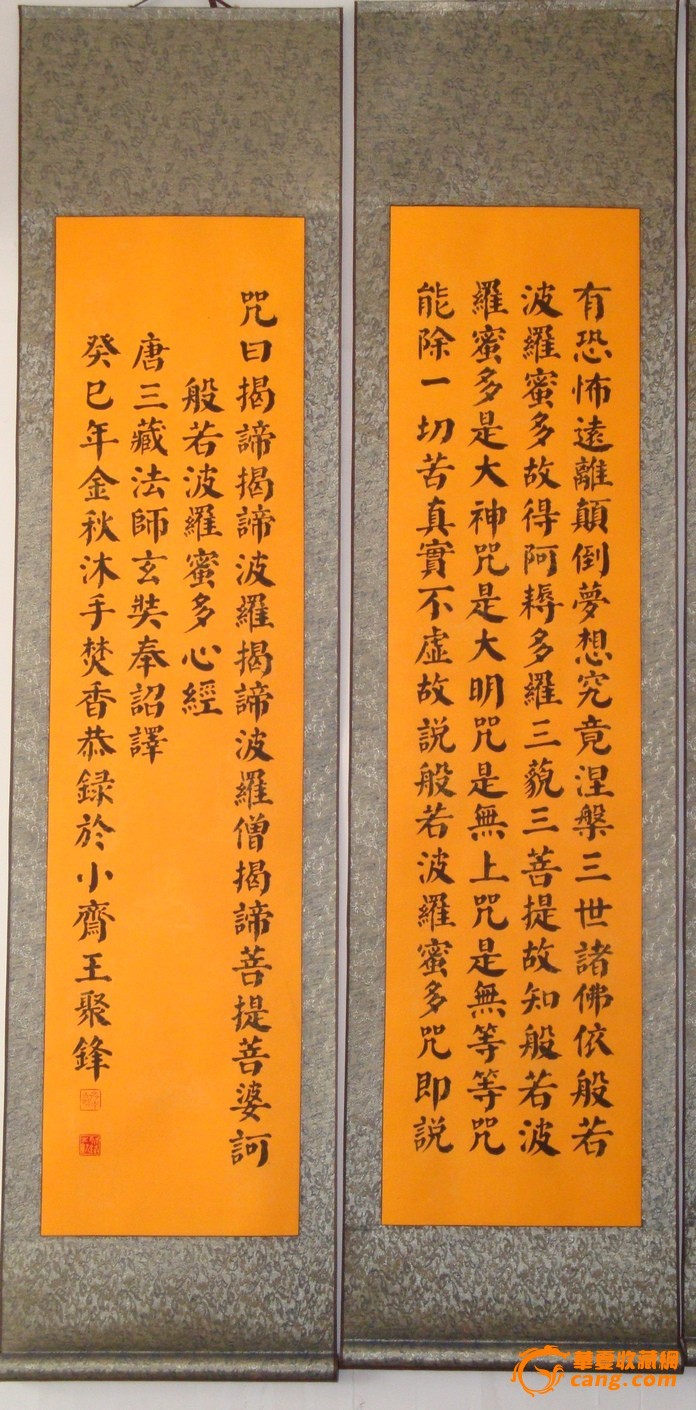 有恐怖遠離顛倒夢想究竟涅槃三世諸佛依般若
波羅蜜多故得阿耨多羅三藐三菩提故知般若波
羅蜜多是大神咒是大明咒是無上咒是無等等咒
能除一切苦真實不虛故説般若波羅蜜多咒即説
咒曰揭諦揭諦波羅揭諦波羅僧揭諦菩提菩婆訶
般若波羅蜜多心經
唐三藏法師玄奘奉詔譯
癸巳年金秋沐手焚香恭録於小齋王聚鋒
華夏收藏網
cang.com